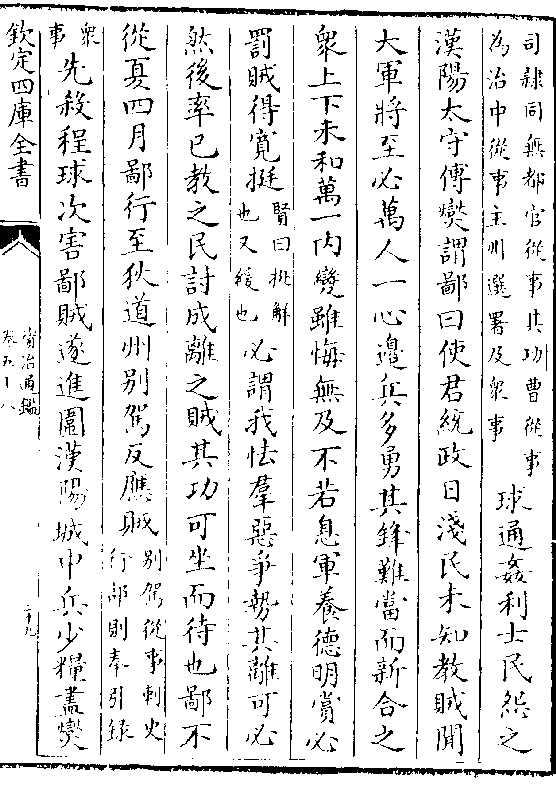 司隸同無都官從事其功曹從事
為治中從事主州選署及衆事
球通姦利士民怨之
漢陽太守傅爕謂鄙曰使君統政日淺民未知教賊聞
大軍將至必萬人一心邊兵多勇其鋒難當而新合之
衆上下未和萬一内變雖悔無及不若息軍養德明賞必
罰賊得寛挺
賢曰挺解
也又緩也
必謂我怯羣惡爭勢其離可必
然後率已教之民討成離之賊其功可坐而待也鄙不
從夏四月鄙行至狄道州别駕反應賊
别駕從事刺史
行部則奉引録
衆
事
先殺程球次害鄙賊遂進圍漢陽城中兵少糧盡爕
欽定四庫全書
資治通鑑
卷五十八
二十九